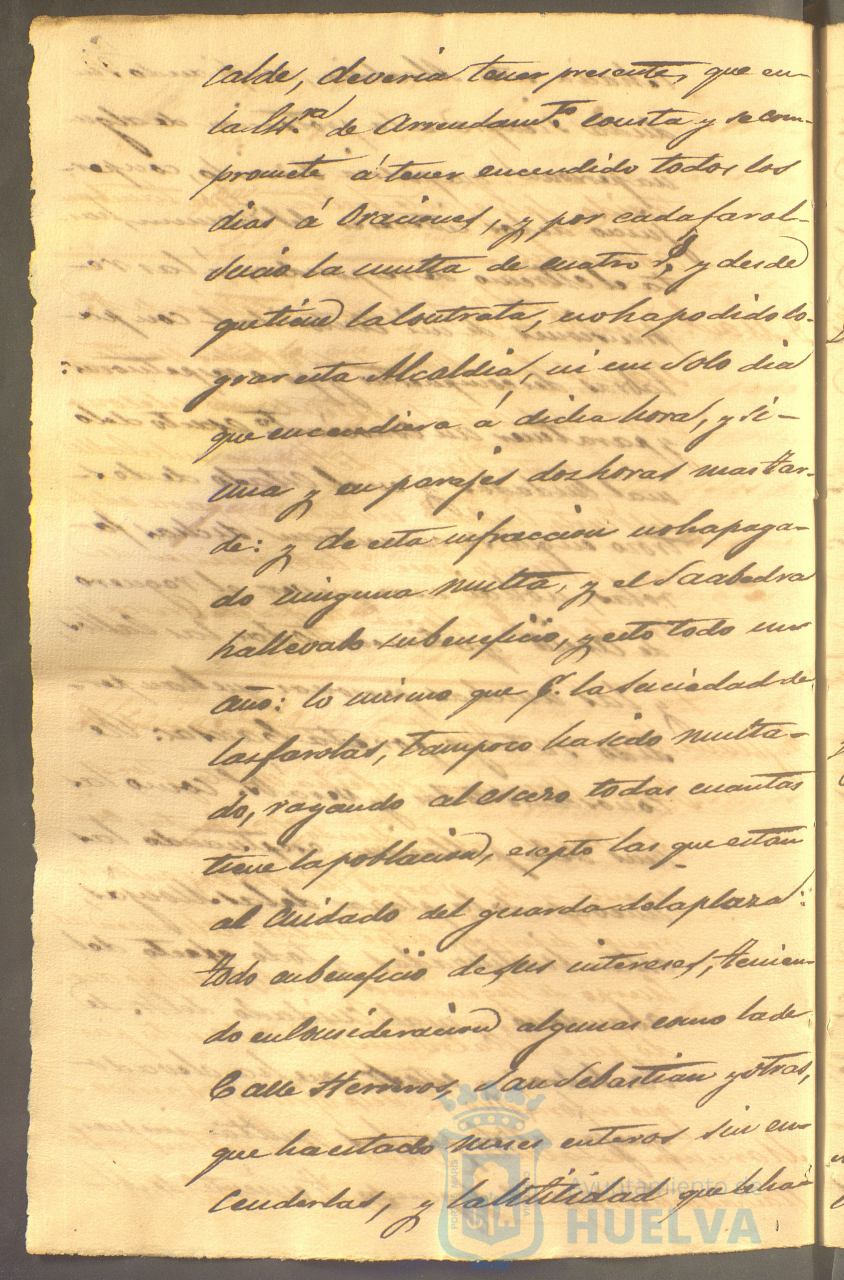 calde, deveria tener presente, que en
la Es.ra de Arrendam.to consta y se com-
promete á tener encendido todos los
dias á Oraciones, y por cada farol
sucio la multa de cuatro r.s y desde
que tiene la Contrata, no ha podido lo-
grar esta Alcaldia, ni un solo dia
que encendiera á dicha hora, y si-
una y en parajes dos horas mas tar-
de: y de esta infraccion no ha paga-
do ninguna multa, y el Saabedra
ha llevado su beneficio, y esto todo un
año: lo mismo que p.r la suciedad de
las farolas, tampoco ha sido multa-
do, rayando al escero todas cuantas
tiene la poblacion, esepto las que estan
al cuidado del guarda de la plaza:
todo en beneficio de sus intereses, tenien-
do en Consideracion algunas como la de
Calle Herreros, San Sebastian y otras,
que ha estado meses enteros sin en-
cenderlas, y la Utilidad que le ha
Ayuntamiento de
HUELVA